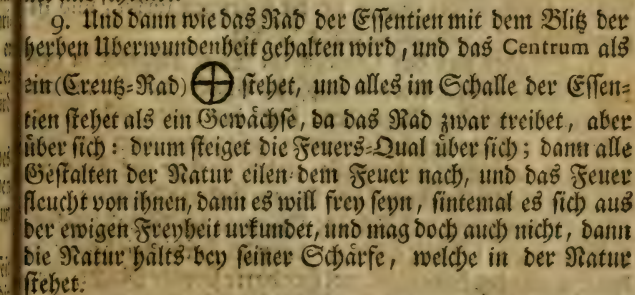 9. Und dann wie das Rad der Essentien mit dem Blitz der
herben Uberwundenheit gehalten wird, und das Centrum als
ein (Creutz=Rad) stehet, und alles im Schalle der Essen=
tien stehet als ein Gewächse, da das Rad zwar treibet, aber
über sich: drum steiget die Feuers=Qual über sich; dann alle
Gestalten der Natur eilen dem Feuer nach, und das Feuer
fleucht von ihnen, dann es will frey seyn, sintemal es sich aus
der ewigen Freyheit urkundet, und mag doch auch nicht, dann
die Natur hälts bey seiner Schärfe, welche in der Natur
stehet.